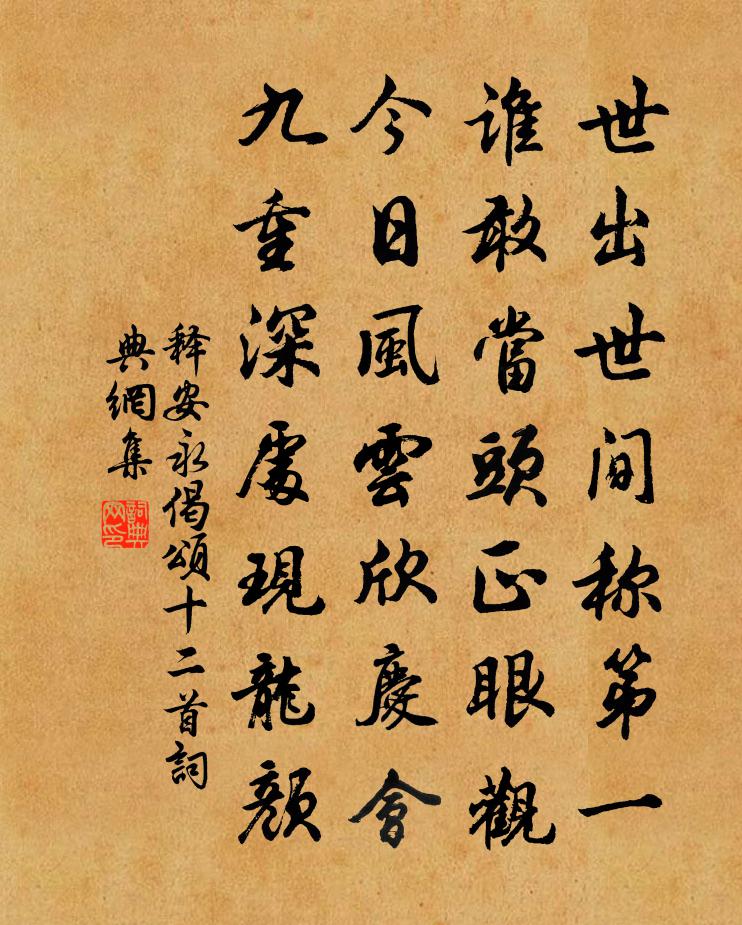 世出世间称第一
誰敢當頭正眼觀
今日風雲欣慶會
九重深處現龍顏
释安永偈頌十二首詞
典網集
詞典
网印